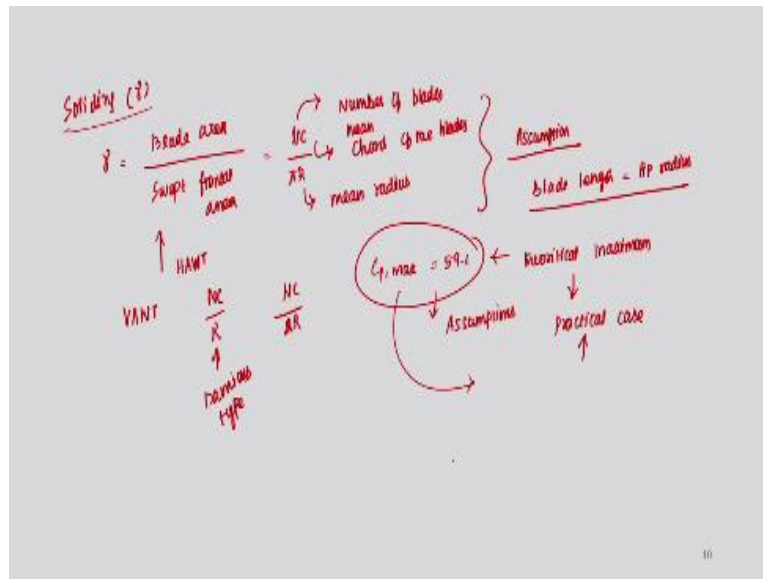 Solidity (γ)
γ = Blade area / Swept frontal area = NC / πR
Number of blades
mean
Chord of the blades
mean radius
Assumption
Blade length = tip radius
HAWT
VAWT NC / R NC / 2R
Darrieus type
Cp, max = 59.
Theoretical maximum
Assumptions
Practical case
10